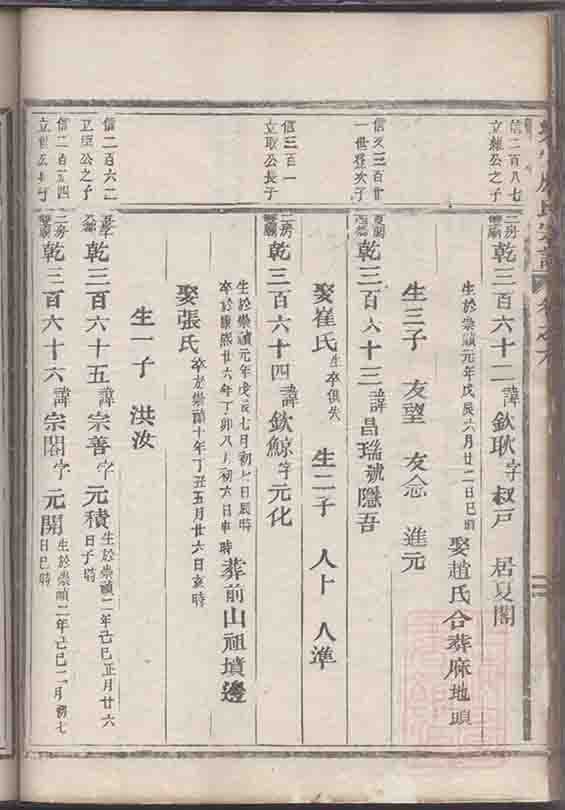 信二百八七
立賴公之子
二房
乾三百六十二諱欽耿字叔戸 居夏閣
生於崇禎元年戊辰六月廿二日巳時 娶趙氏合葬麻地頭
生三子 友望 友念 進元
信又三百廿
一世登次子
乾三百六十三諱昌瑞號隱吾
娶崔氏生卒俱失 生二子 人卜 人準
信三百一
立取公長子
二房
乾三百六十四諱欽鯨字元化
生於崇禎元年戊辰七月初七日辰時
卒於康熙廿六年丁卯八月初六日申時 葬前山祖墳邊
娶張氏 卒於崇禎十年丁丑五月廿六日亥時
生一子 洪汝
信二百六二
立臣公之子
乾三百六十五諱宗善字元積生於崇禎二年己巳正月廿六
日子時
信二百五四
乾三百六十六諱宗閣字元開生於崇禎二年己巳二月初七
日巳時